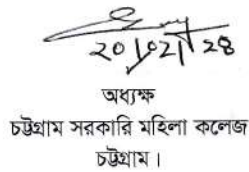 অধ্যক্ষ
চট্টগ্রাম সরকারি মহিলা কলেজ
চট্টগ্রাম।